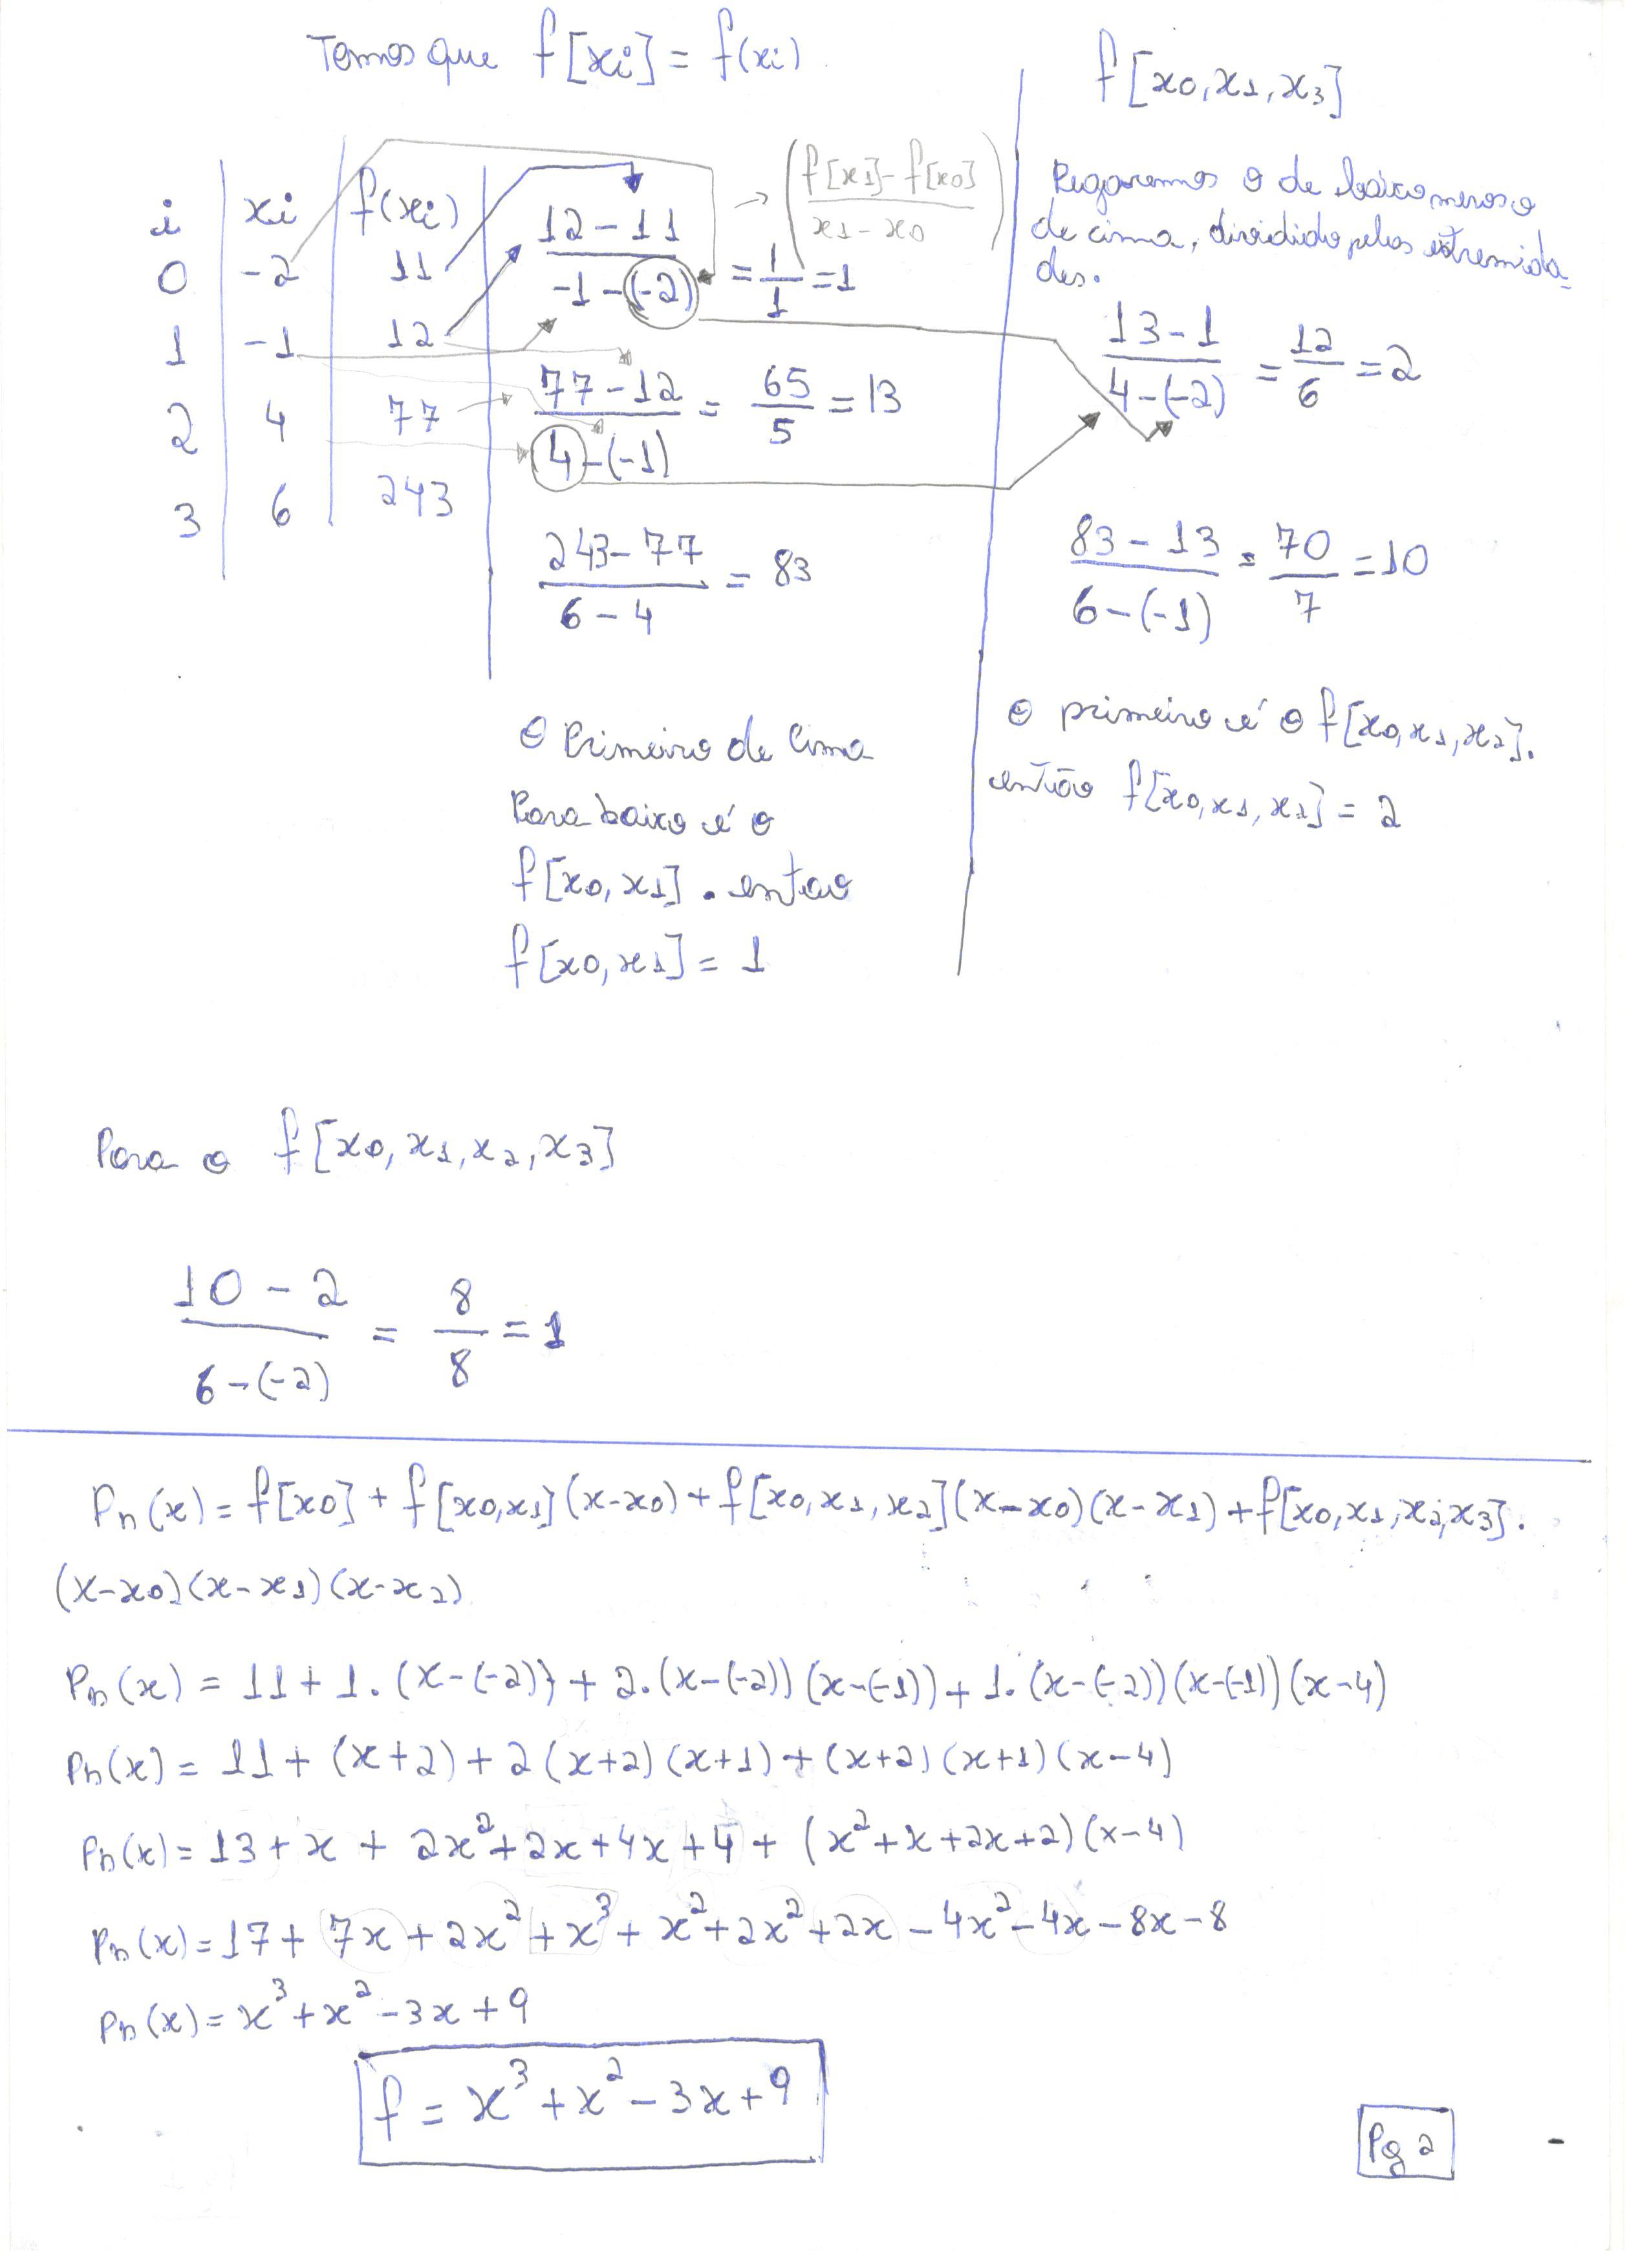 Temos que f[xi] = f(xi)
i xi f(xi)
0 -2 11
1 -1 12
2 4 77
3 6 243
(12-11)/(-1-(-2)) = 1/1 = 1
→ ((f[x1]-f[x0])/(x1-x0))
(77-12)/(4-(-1)) = 65/5 = 13
(243-77)/(6-4) = 83
O Primeiro de Cima
Para baixo é o
f[x0, x1]. entao
f[x0, x1] = 1
f[x0, x1, x3]
Pegaremos o de baixo menos o
de cima, dividido pelas extremida-
des.
(13-1)/(4-(-2)) = 12/6 = 2
(83-13)/(6-(-1)) = 70/7 = 10
O primeiro é o f[x0, x1, x2].
então f[x0, x1, x2] = 2
Para o f[x0, x1, x2, x3]
(10-2)/(6-(-2)) = 8/8 = 1
Pn(x) = f[x0] + f[x0,x1](x-x0) + f[x0,x1,x2](x-x0)(x-x1) + f[x0,x1,x2,x3].
(x-x0)(x-x1)(x-x2)
Pn(x) = 11 + 1.(x-(-2)) + 2.(x-(-2))(x-(-1)) + 1.(x-(-2))(x-(-1))(x-4)
Pn(x) = 11 + (x+2) + 2(x+2)(x+1) + (x+2)(x+1)(x-4)
Pn(x) = 13 + x + 2x² + 2x + 4x + 4 + (x² + x + 2x + 2)(x-4)
Pn(x) = 17 + 7x + 2x² + x³ + x² + 2x² + 2x - 4x² - 4x - 8x - 8
Pn(x) = x³ + x² - 3x + 9
f = x³ + x² - 3x + 9
Pg 2